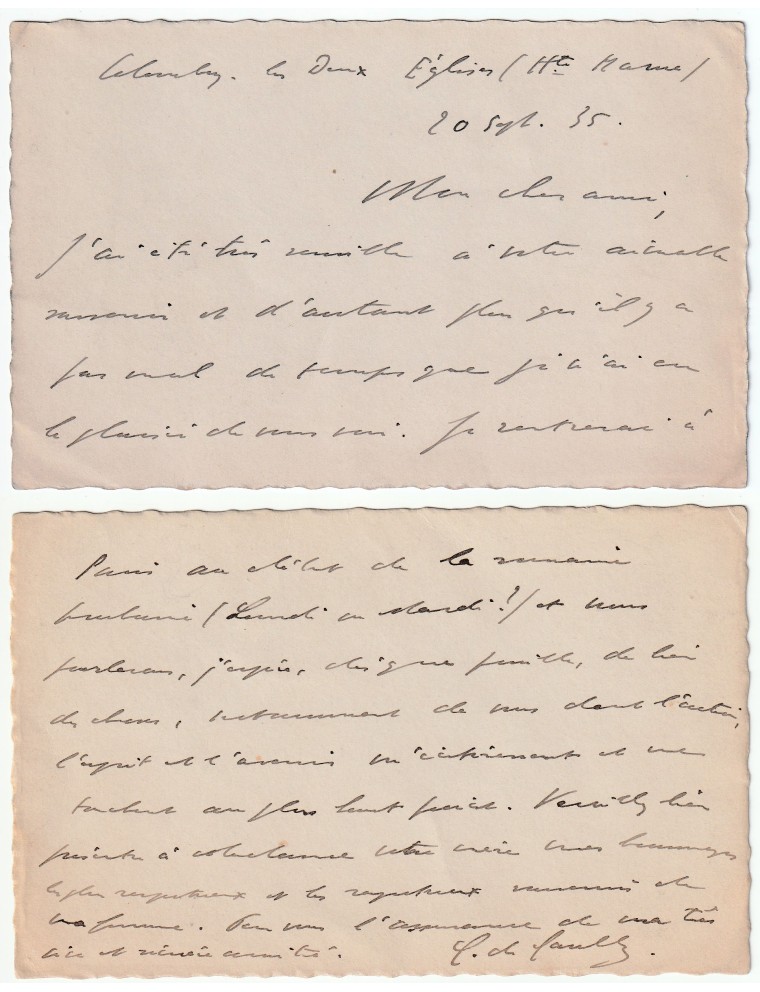 Colombey-les Deux Églises (Hte Marne)
20 Sept. 35.
Mon cher ami,
J'ai été très sensible à votre aimable
souvenir et d'autant plus qu'il y a
pas mal de temps que je n'ai eu
le plaisir de vous voir. Je rentrerai à
Paris au début de la semaine
prochaine (Lundi ou Mardi?) et nous
parlerons, j'espère, dès que possible, de bien
des choses, notamment de vous dont l'action,
l'esprit et l'avenir m'intéressent et me
touchent au plus haut point. Veuillez bien
présenter à votre mère mes hommages
les plus respectueux et les respectueux souvenirs de
ma femme. Pour vous l'assurance de ma très
vive et sincère amitié. C. de Gaulle.